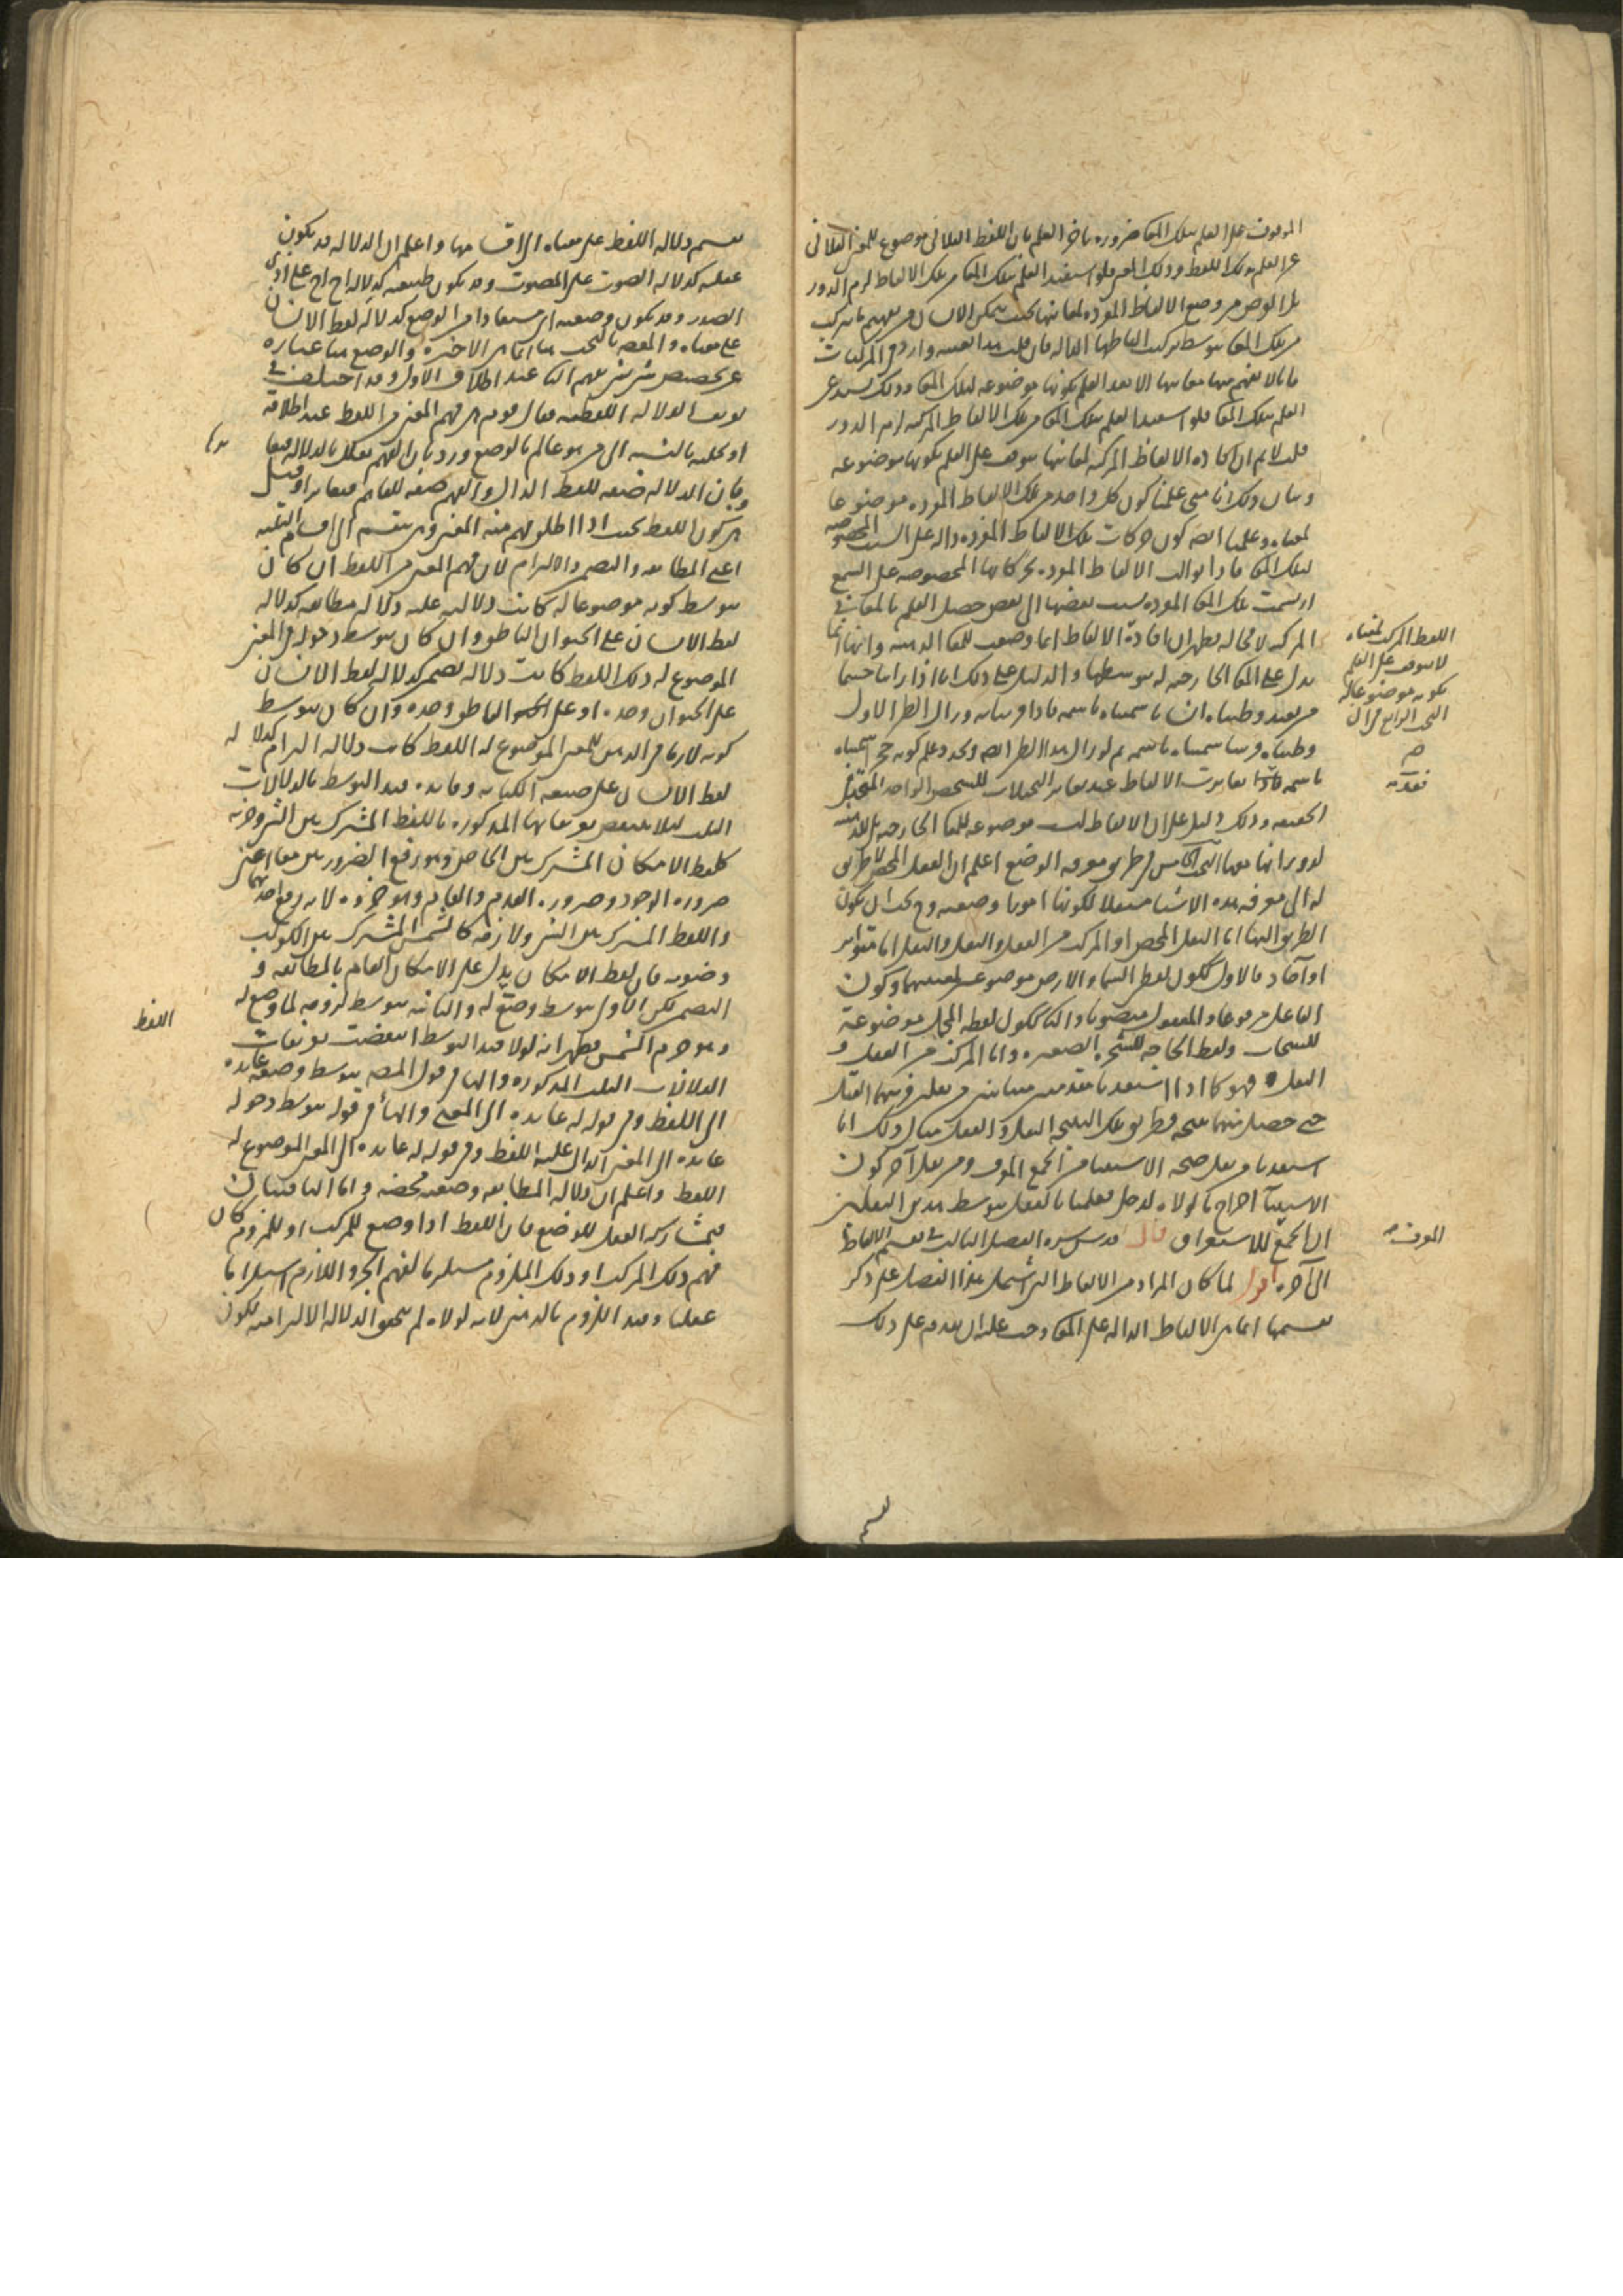 الموقوف على العلم بتلك المعاني ضرورة تأخر العلم بان اللفظ الفلاني موضوع للمعنى الفلاني
عن العلم بذلك اللفظ وذلك المعنى فلو استفيد العلم بتلك المعاني من تلك الالفاظ لزم الدور
بل الغرض من وضع الالفاظ المفردة لمعانيها بحيث يتمكن الانسان من تفهيم ما تركب
من تلك المعاني بتوسط تركيب الفاظها الدالة فان قلت هذا بعينه وارد في المركبات
فانا لا نفهم منها معانيها الا بعد العلم بكونها موضوعة لتلك المعاني وذلك يستدعي
العلم بتلك المعاني فلو استفيد العلم بتلك المعاني من تلك الالفاظ المركبة لزم الدور
قلت لا نم ان افادة الالفاظ المركبة لمعانيها يتوقف على العلم بكونها موضوعة
وبيان ذلك انا متى علمنا كون كل واحد من تلك الالفاظ المفردة موضوعا
لمعناه وعلمنا ايضا كون حركات تلك الالفاظ المفردة دالة على النسب المخصوصة
لتلك المعاني فاذا توالت الالفاظ المفردة بحركاتها المخصوصة على السمع
ارتسمت تلك المعاني المفردة بنسب بعضها الى بعض حصل العلم بالمعاني
المركبة لا محالة يظهر ان افادة الالفاظ انما وضعت للمعاني الذهنية وانها انما
تدل على المعاني الخارجية بتوسطها والدليل على ذلك انا اذا راينا جسما
من بعيد وظنناه انسانا سميناه باسمه فاذا قربنا منه وزال الظن الاول
وظنناه فرسا سميناه باسمه ثم لو زال هذا الظن ايضا وتجدد علم كونه حجرا سميناه
باسمه فاذا تغايرت الالفاظ عند تغاير التخيلات للشخص الواحد المتحد في
الحقيقة وذلك دليل على ان الالفاظ ليست موضوعة للمعاني الخارجية بل للذهنية
لدورانها معها البحث الخامس في طريق معرفة الوضع اعلم ان العقل المحض لا طريق
له الى معرفة هذه الاشيا مستقلا لكونها امورا وضعية وح يجب ان يكون
الطريق اليها اما النقل المحض او المركب من العقل والنقل والنقل اما متواتر
او آحاد فالاول ككون لفظ السما والارض موضوعين لمعنييهما وكون
الفاعل مرفوعا والمفعول منصوبا والثاني ككون لفظة المجل موضوعة
للسحاب ولفظ الحاجة للشجرة الصغيرة واما المركب من العقل و
النقل فهو كما اذا استفدنا مقدمتين من نقل فركبهما العقل
حتى حصل منهما نتيجة فطريق تلك النتيجة النقل والعقل مثال ذلك انا
استفدنا من نقل صحة الاستثنا من الجمع المعرف ومن نقل آخر كون
الاستثنا اخراج ما لولاه لدخل فعلمنا بالعقل بتوسط هذين النقلين
ان الجمع للاستغراق قال قدس سره الفصل الثالث في تقسيم الالفاظ
الى آخره اقول لما كان المراد من الالفاظ التي يشتمل هذا الفصل على ذكر
تقسيمها انما هي الالفاظ الدالة على المعاني وجب عليه ان يقدم على ذلك
اللفظ المركب لمعناه
لا يتوقف على العلم
بكونه موضوعا له
البحث الرابع في ان
المعرف
تقسيم
تقسيم دلالة اللفظ على معناه الى اقسامها واعلم ان الدلالة قد يكون
عقلية كدلالة الصوت على المصوت وقد يكون طبيعية كدلالة اح اح على اذى
الصدر وقد يكون وضعية اي مستفادا من الوضع كدلالة لفظ الانسان
على معناه والمقصود بالبحث هنا انما هي الاخيرة والوضع هنا عبارة
عن تخصيص شي بشي يفهم الثاني عند اطلاق الاول وقد اختلف في
تعريف الدلالة اللفظية فقال قوم هي فهم المعنى من اللفظ عند اطلاقه
او تخيله بالنسبة الى من هو عالم بالوضع ورد بان الفهم معلل بالدلالة فيغا
وبان الدلالة صفة للفظ الدال والفهم صفة للفاهم فتغايرا وقيل
هي كون اللفظ بحيث اذا اطلق فهم منه المعنى وهي تنقسم الى اقسام ثلثة
اعني المطابقة والتضمن والالتزام لان فهم المعنى من اللفظ ان كان
بتوسط كونه موضوعا له كانت دلالته عليه دلالة مطابقة كدلالة
لفظ الانسان على الحيوان الناطق وان كان بتوسط دخوله في المعنى
الموضوع له ذلك اللفظ كانت دلالة تضمن كدلالة لفظ الانسان
على الحيوان وحده او على الناطق وحده وان كان بتوسط
كونه لازما في الذهن للمعنى الموضوع له اللفظ كانت دلالة التزام كدلالة
لفظ الانسان على صنعة الكتابة وفايدة قيد التوسط بالدلالات
الثلث ليلا ينتقض تعريفاتها المذكورة باللفظ المشترك بين الشي وجزئه
كلفظ الامكان المشترك بين الخاص وهو رفع الضرورتين معا اعني
ضرورة الوجود وضرورة العدم والعام وهو جزؤه لانه رفع احديهما
واللفظ المشترك بين الشي ولازمه كالشمس المشترك بين الكوكب
وضوئه فان لفظ الامكان يدل على الامكان العام بالمطابقة و
التضمن لكن الاول بتوسط وضع له والثانية بتوسط لزومه لما وضع له
وهو جرم الشمس فظهر انه لولا قيد التوسط انتقضت تعريفات
الدلالات الثلث المذكورة والها في قول المصنف بتوسط وضعه عايدة
الى اللفظ وفي قوله له عايدة الى المعنى والها في قوله بتوسط دخوله
عايدة الى المعنى الدال عليه اللفظ وفي قوله له عايدة الى المعنى الموضوع له
اللفظ واعلم ان دلالة المطابقة وضعية محضة واما الباقيتان
فبمشاركة العقل للوضع فان اللفظ اذا وضع للمركب او للملزوم كان
فهم ذلك المركب او ذلك الملزوم مستلزما لفهم الجزء او اللازم استلزاما
عقليا وقيد اللزوم بالذهني لانه لولاه لم يتحقق الدلالة الالتزامية لكون
اللفظ